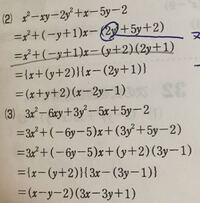 (2) x²-xy-2y²+x-5y-2
=x²+(-y+1)x-(2y²+5y+2)
=x²+(-y+1)x-(y+2)(2y+1)
={x+(y+2)}{x-(2y+1)}
=(x+y+2)(x-2y-1)
(3) 3x²-6xy+3y²-5x+5y-2
=3x²+(-6y-5)x+(3y²+5y-2)
=3x²+(-6y-5)x+(y+2)(3y-1)
={x-(y+2)}{3x-(3y-1)}
=(x-y-2)(3x-3y+1)